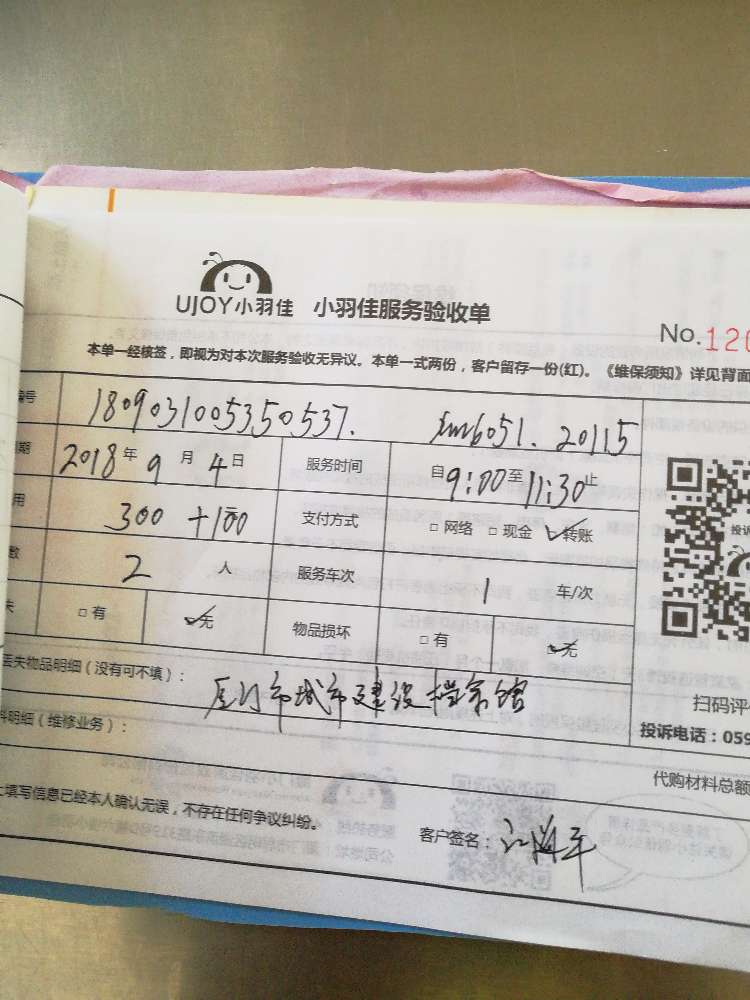 UJOY小羽佳 小羽佳服务验收单
No.120
本单一经核签,即视为对本次服务验收无异议。本单一式两份,客户留存一份(红)。《维保须知》详见背面
编号 180903100535053​7. 20115
期 2018年9月4日 服务时间 自9:00至11:30止
用 300+100 支付方式 □网络 □现金 ☑转账
数 2人 服务车次 1 车/次
失 □有 ☑无 物品损坏 □有 ☑无
丢失物品明细(没有可不填):
厦门市城市建设档案馆
料明细(维修业务):
扫码评
投诉
投诉电话:059
代购材料总额
上填写信息已经本人确认无误,不存在任何争议纠纷。
客户签名: